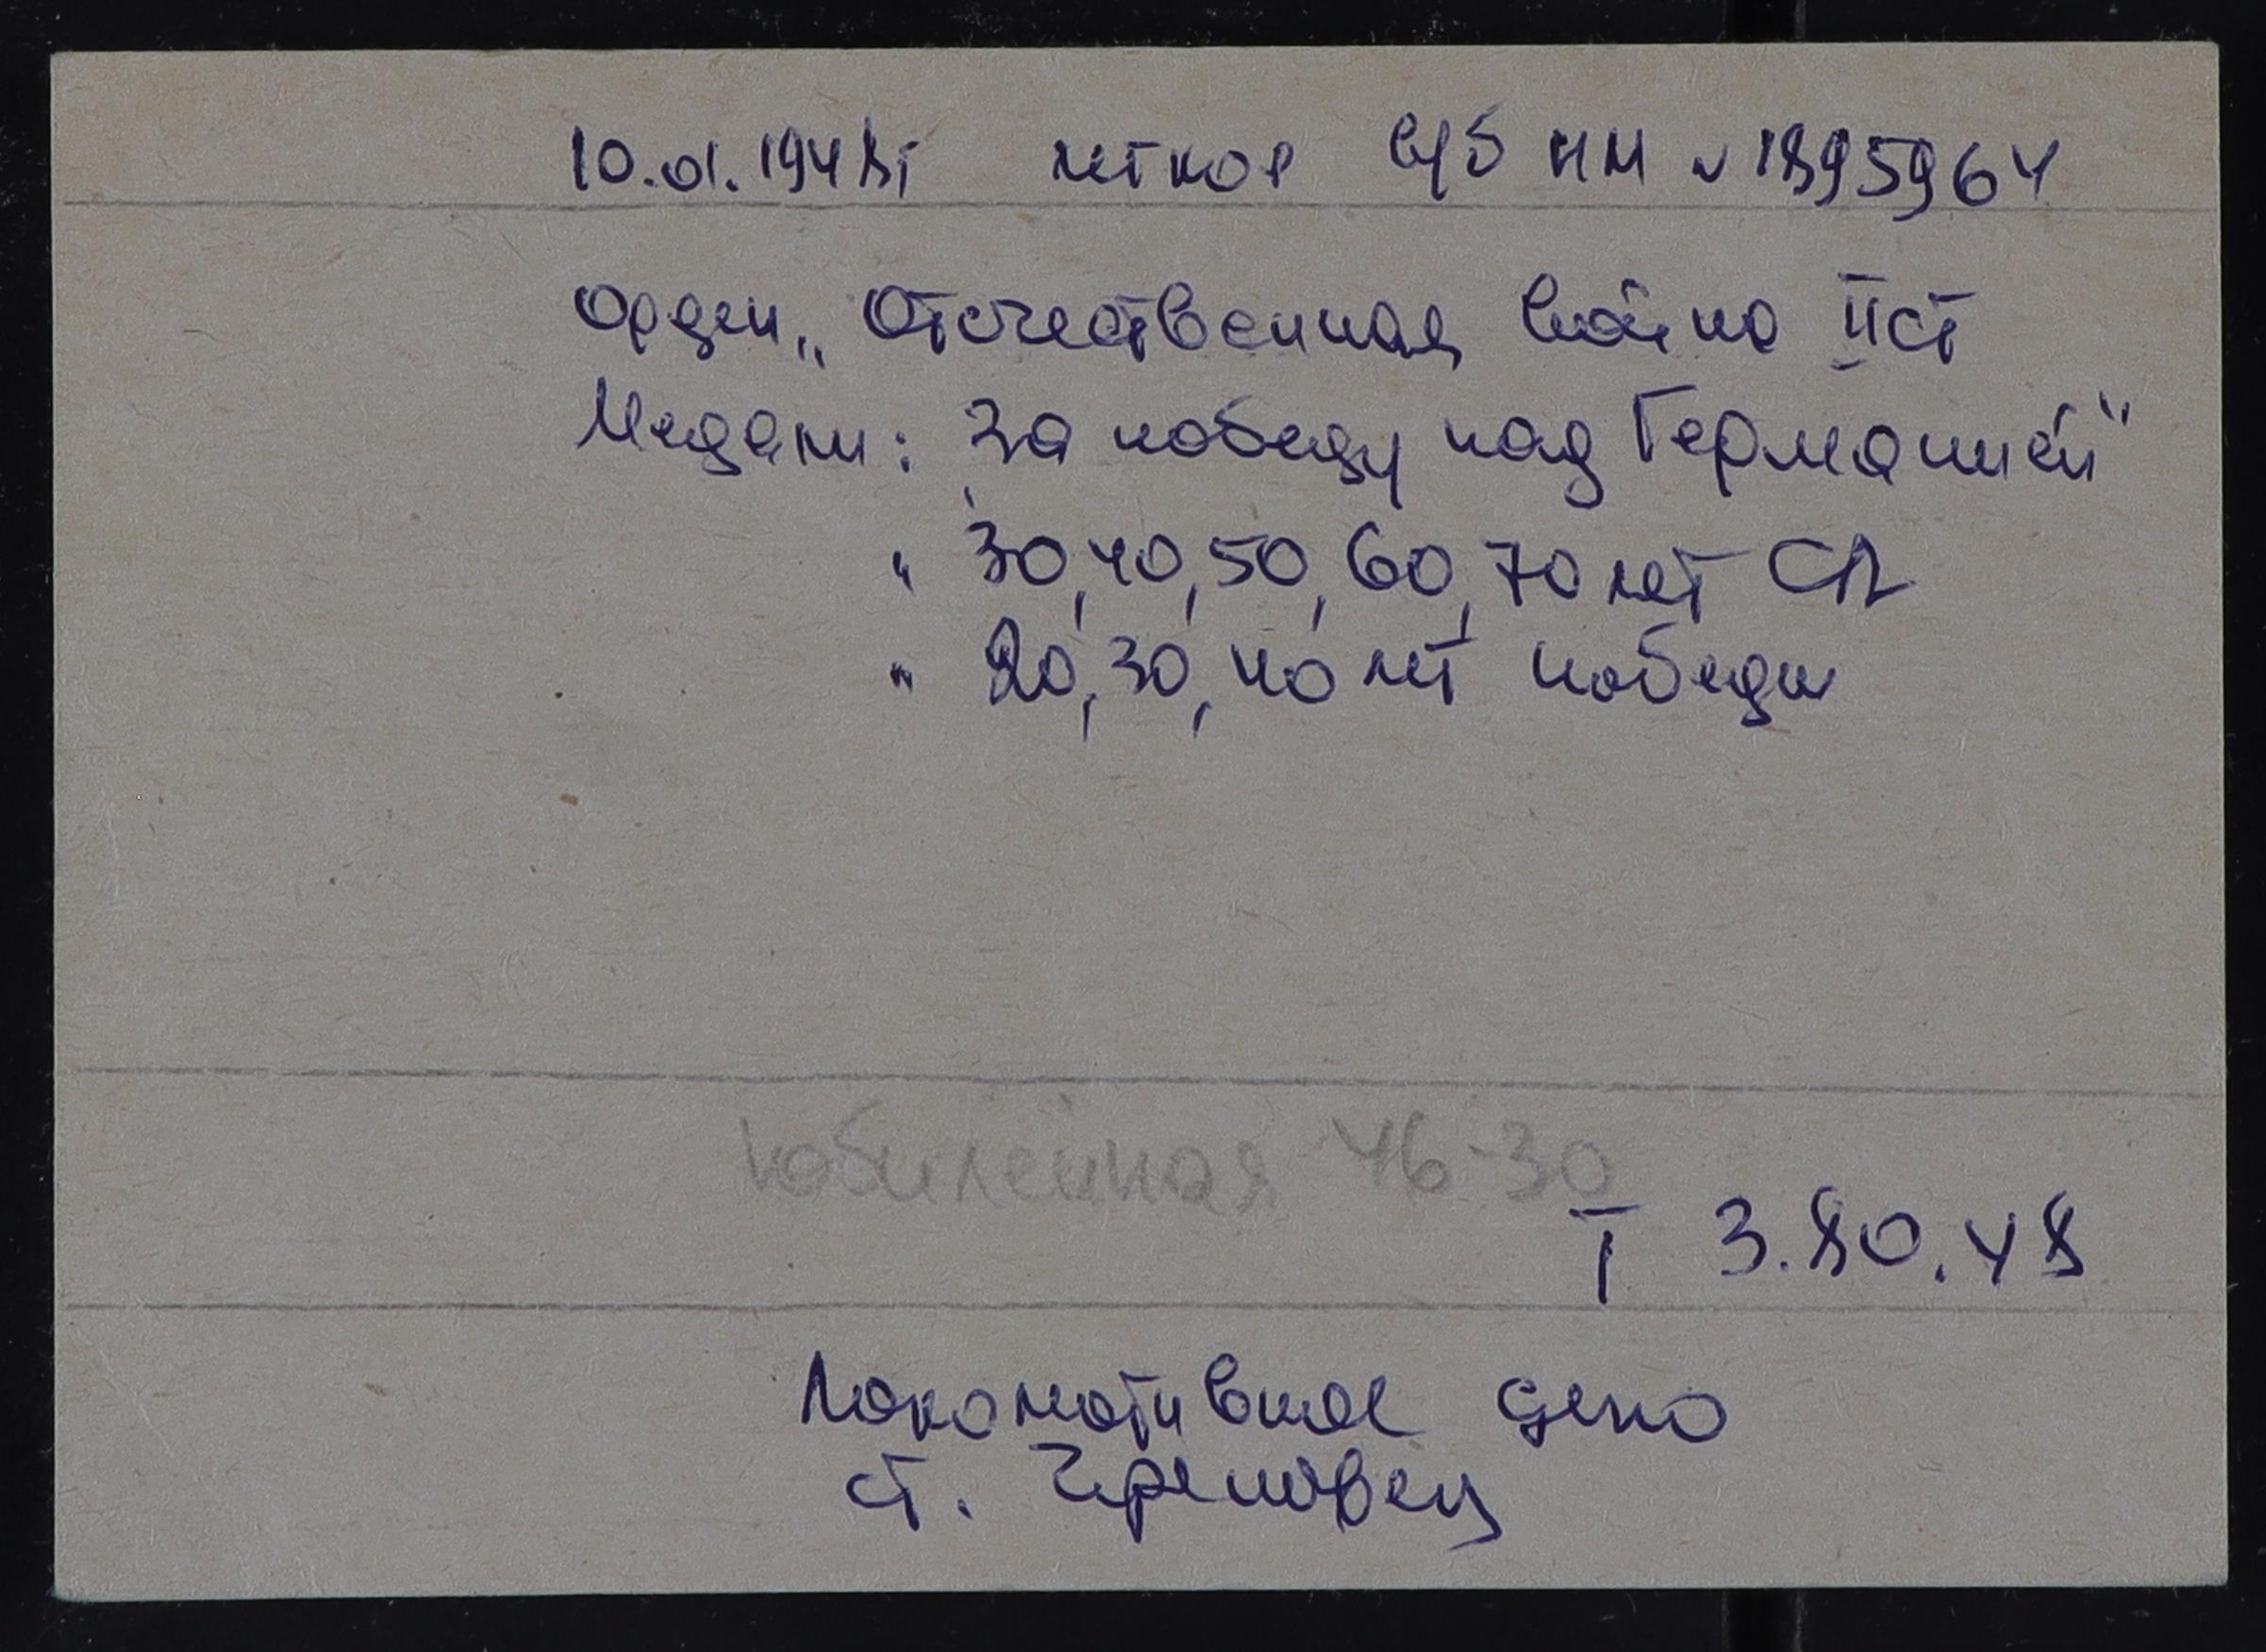 10.01.1948г легкое в/б НМ № 1895964
Орден „Отечественная война II ст
Медали: За победу над Германией"
" 30, 40, 50, 60, 70 лет СА
" 20, 30, 40 лет победы
Юбилейная 46-30
Т 3.80.48
Локомотивное депо
ст. Череповец